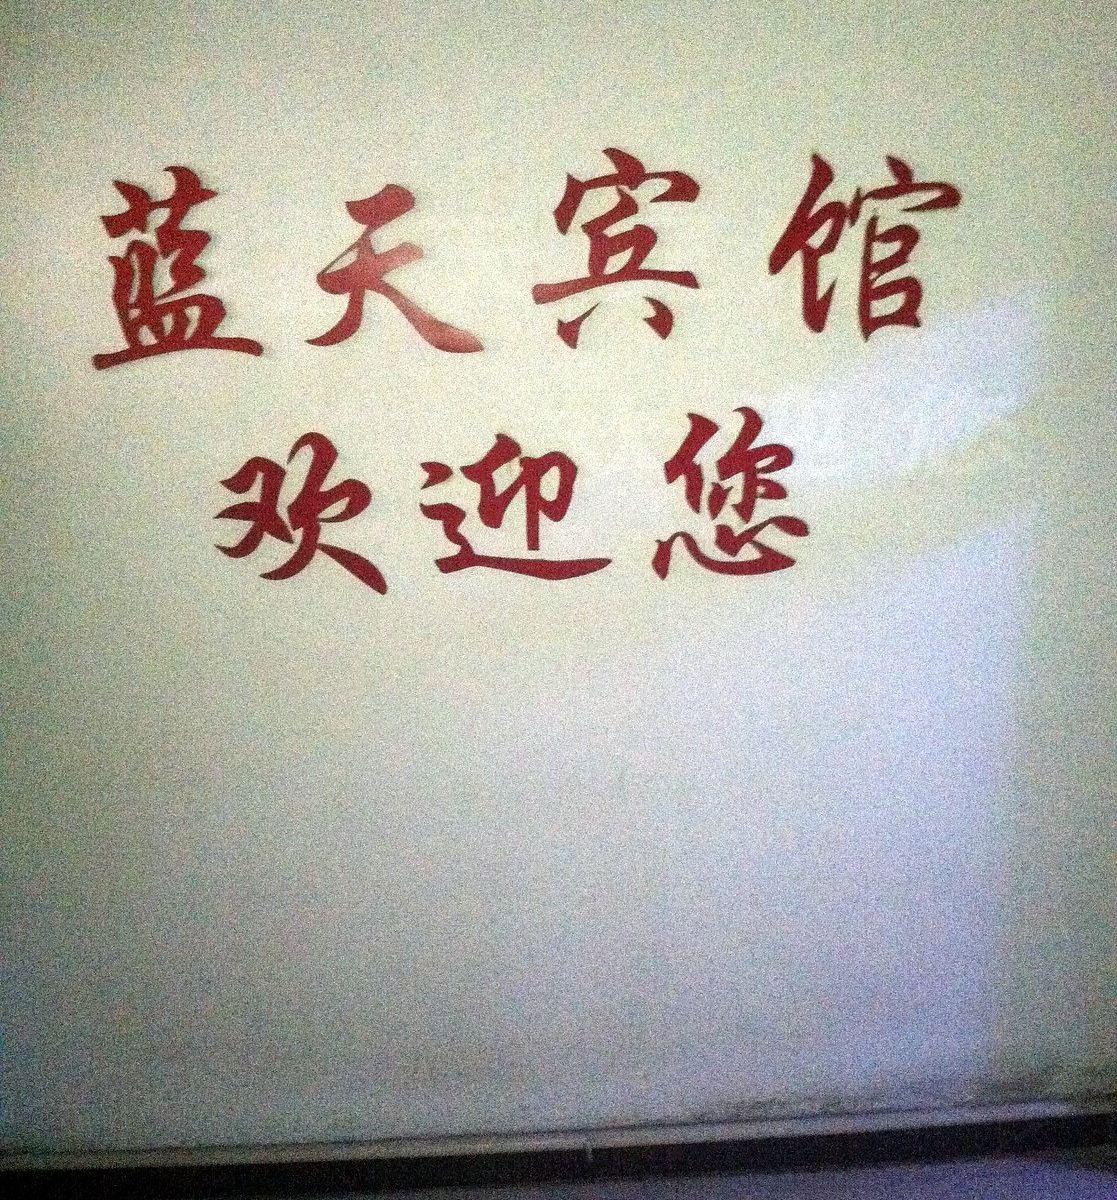 蓝天宾馆
欢迎您